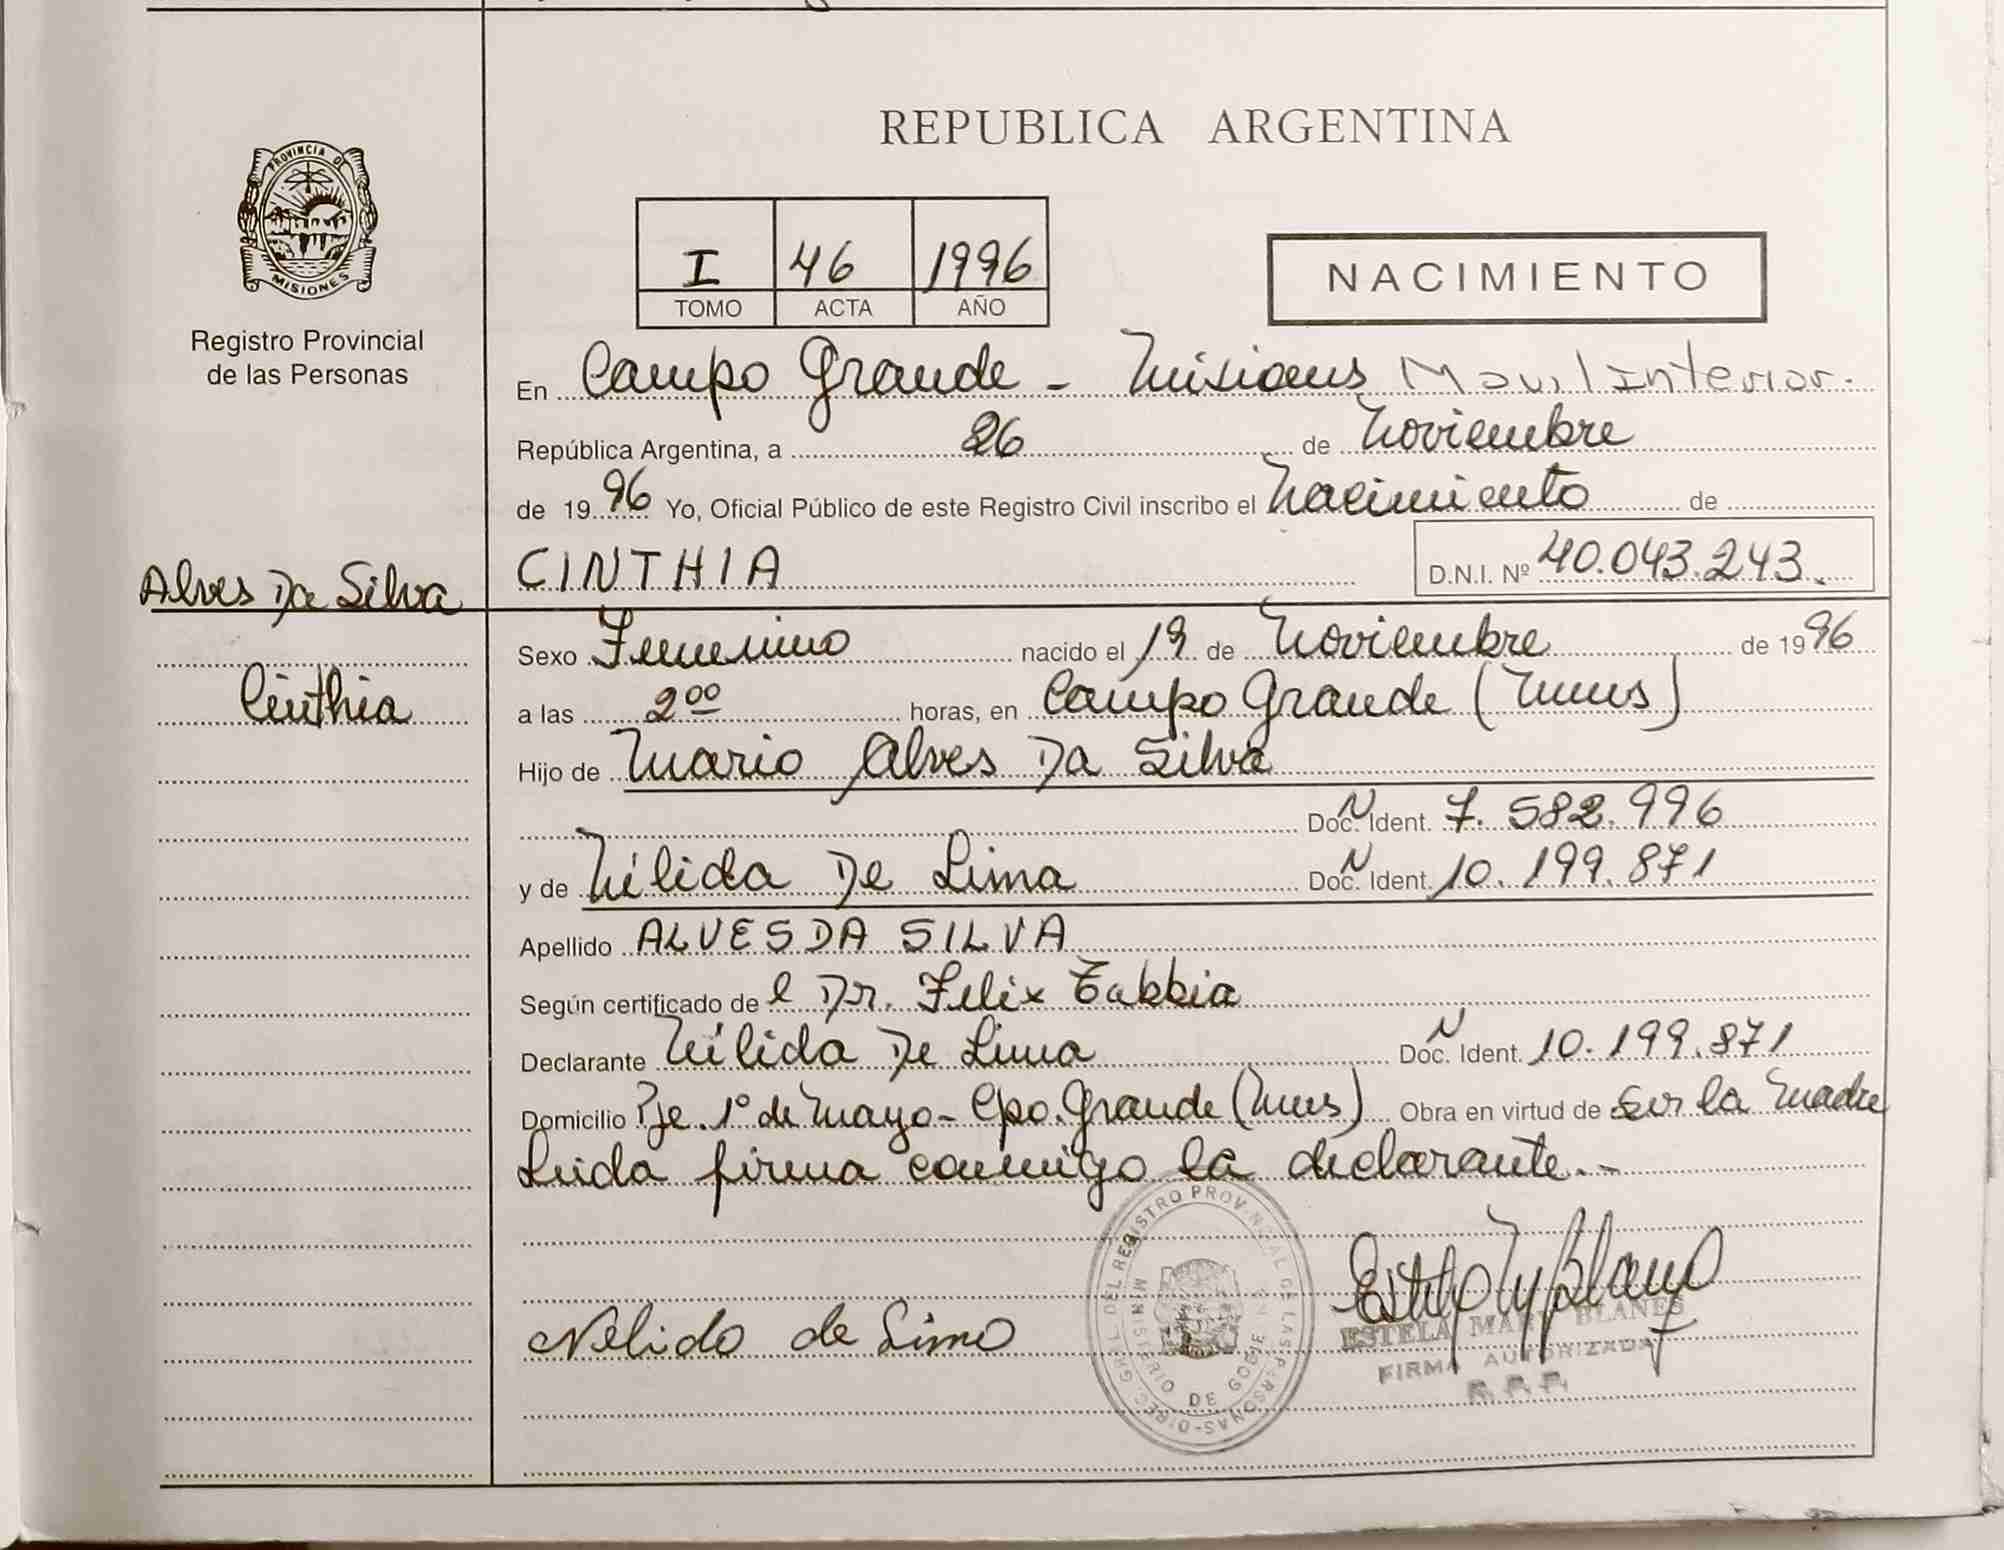 REPUBLICA ARGENTINA
PROVINCIA DE
MISIONES
Registro Provincial
de las Personas
I 46 1996
TOMO ACTA AÑO
NACIMIENTO
En Campo Grande - Misiones Movil Interior.
República Argentina, a 26 de Noviembre
de 1996 Yo, Oficial Público de este Registro Civil inscribo el Nacimiento de
CINTHIA D.N.I. Nº 40.043.243.
Alves Da Silva
Cinthia
Sexo Femenino nacido el 19 de Noviembre de 1996
a las 2 00 horas, en Campo Grande (Mnes)
Hijo de Mario Alves Da Silva
Doc. Ident. N 7.582.996
y de Nélida De Lima Doc. Ident. N 10.199.871
Apellido ALVES DA SILVA
Según certificado del Dr. Felix Tabbia
Declarante Nélida De Lima Doc. Ident. N 10.199.871
Domicilio Pje. 1º de Mayo - Cpo. Grande (Mnes) Obra en virtud de ser la madre
Leida firma conmigo la declarante.-
Nelida de Lima
ESTELA MARY BLANES
FIRMA AUTORIZADA
R.P.P.
DIREC. GRAL. DEL REGISTRO PROVINCIAL DE LAS PERSONAS